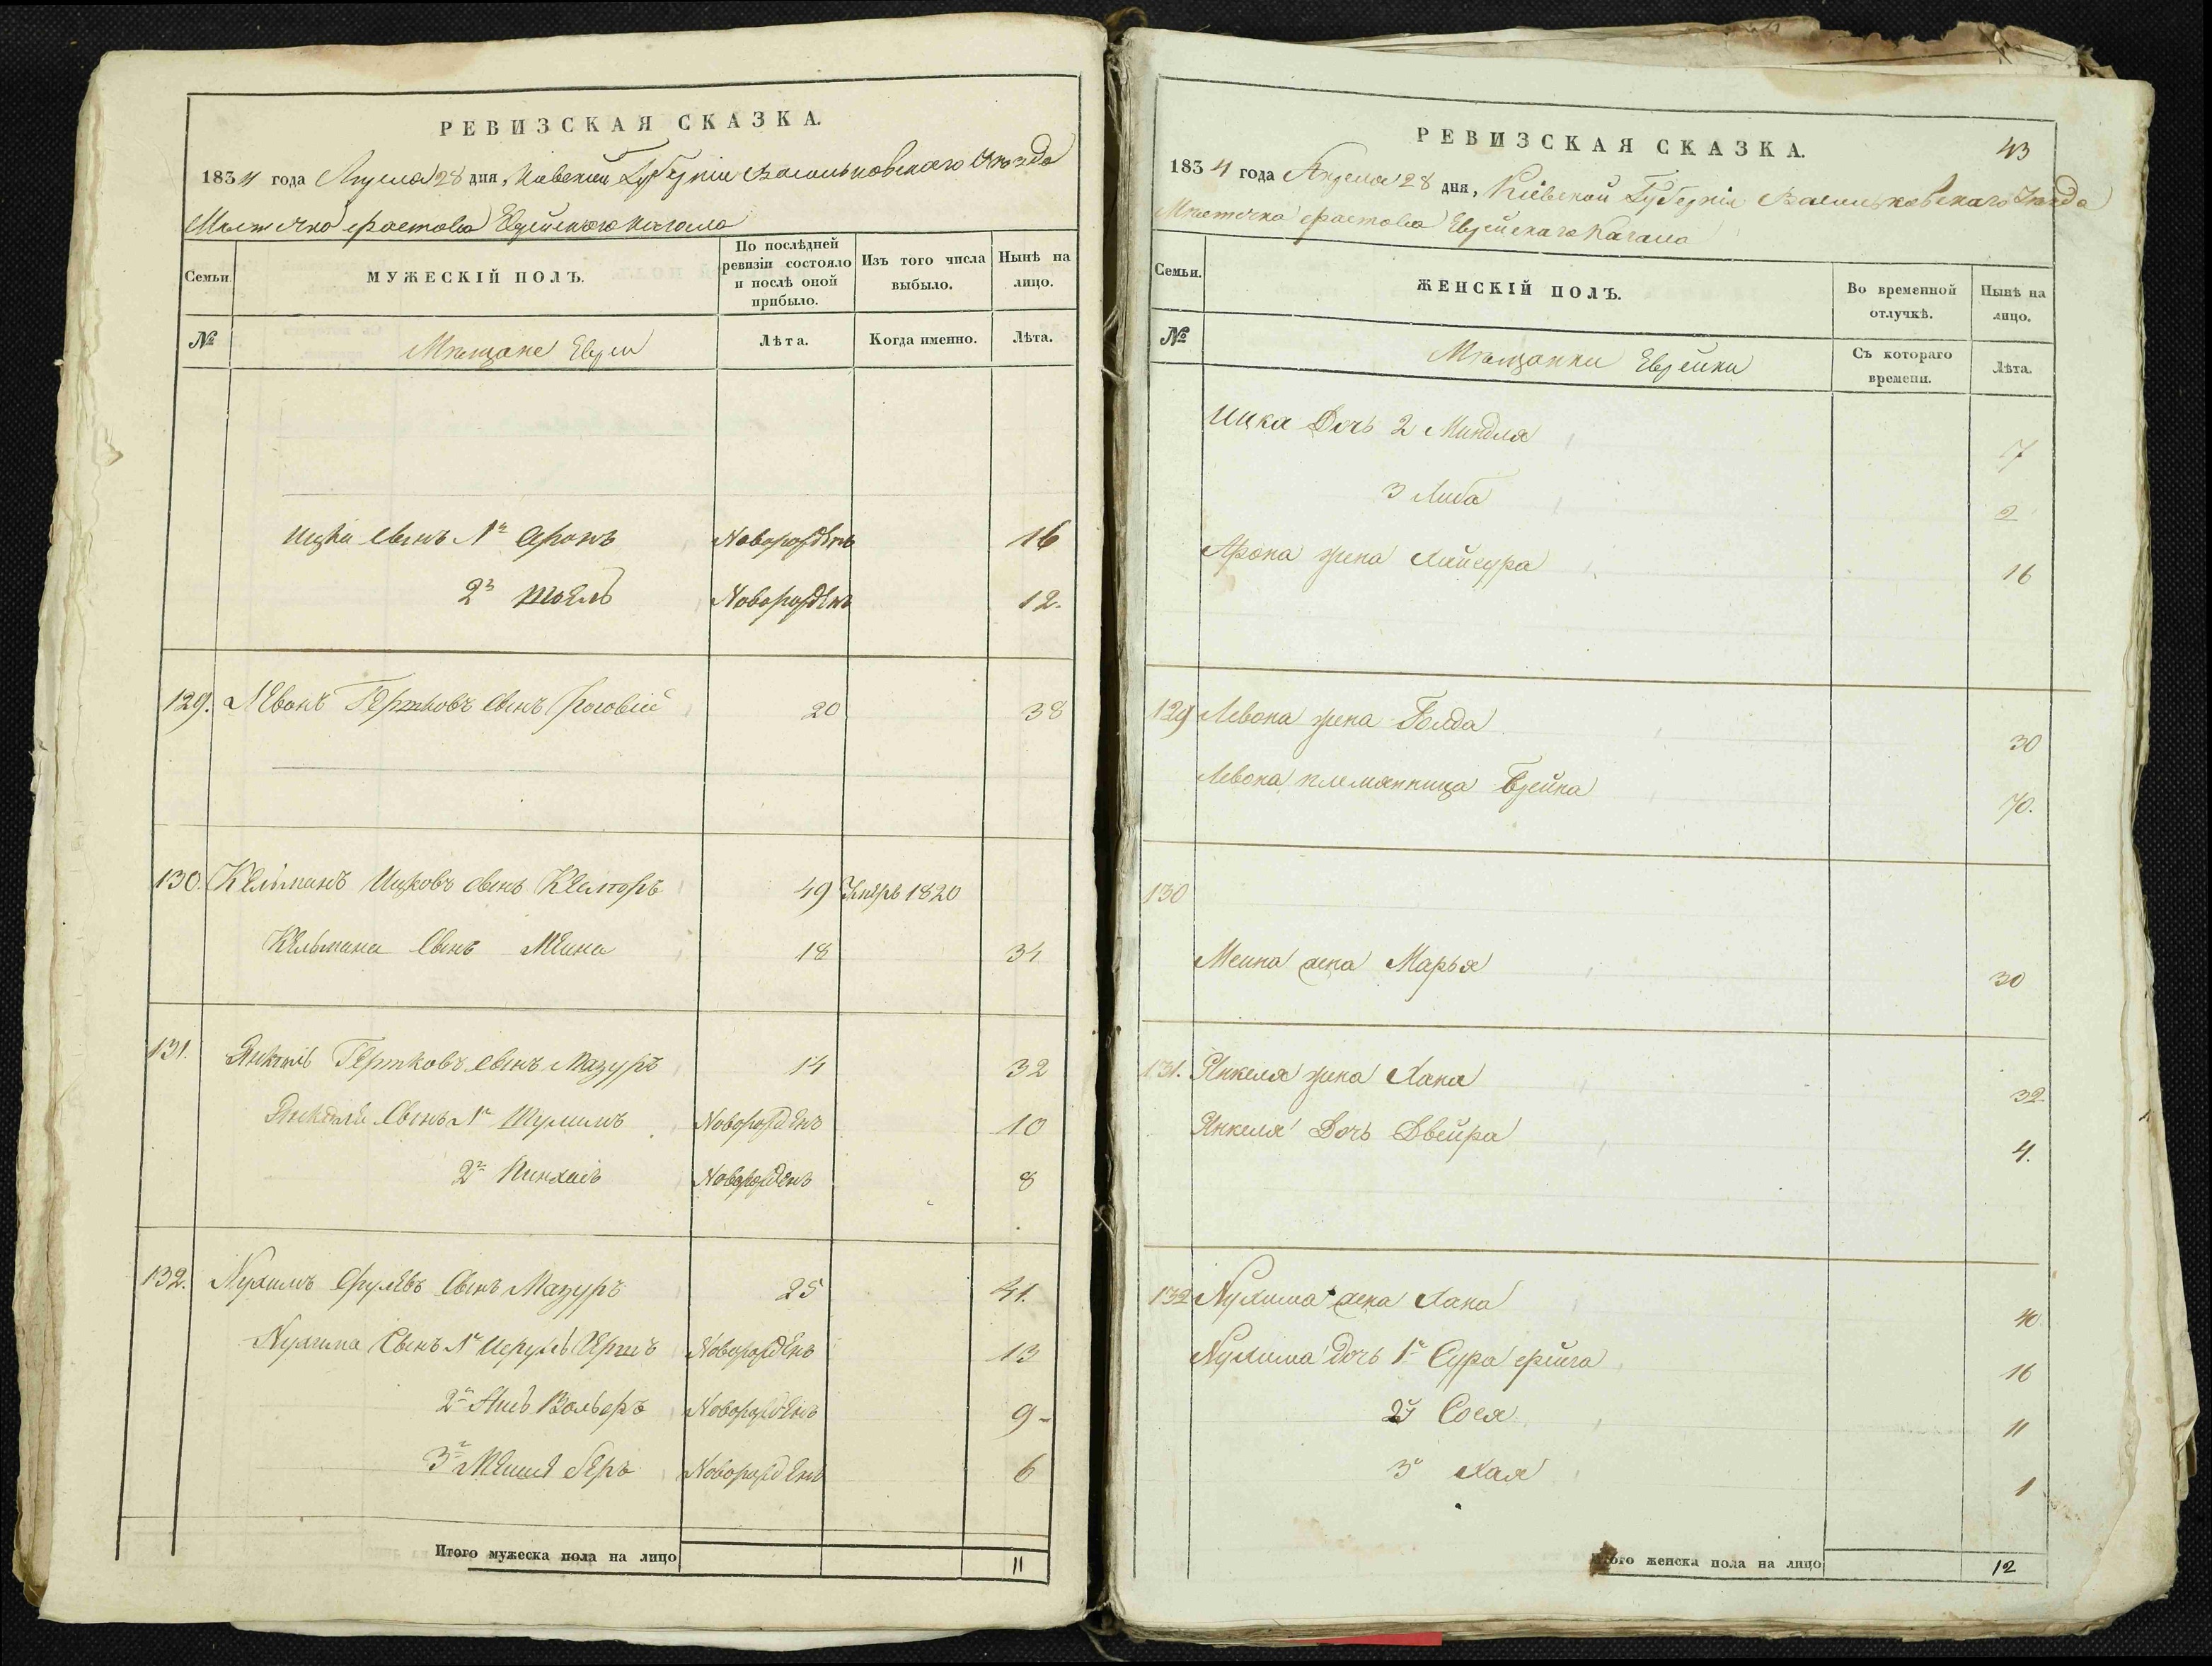 РЕВИЗСКАЯ СКАЗКА.
1834 года Апреля 28 дня, Киевской Губернии Васильковского Уезда
Местечка Фастова Еврейского Кагала
Семьи.
МУЖЕСКІЙ ПОЛЪ.
По послѣдней ревизіи состояло и послѣ оной прибыло.
Изъ того числа выбыло.
Нынѣ на лицо.
№
Мещане Евреи
Лѣта.
Когда именно.
Лѣта.
Ицки Сынъ 1й Аронъ Новорожденъ 16
2й Новорожденъ 12.
129. Левонъ Гершковъ Сынъ 20 38
130. Кельманъ Ицковъ сынъ 49 Умеръ 1820
Кельмана Сынъ Меина 18 34
131. Янкель Гершковъ Сынъ Мазуръ 14 32
Янкеля Сынъ 1й Шулимъ Новорожденъ 10
2й Пинхасъ Новорожденъ 8
132. Нухимъ Срулевъ Сынъ Мазуръ 25 41.
Нухима Сынъ 1й Гершъ Новорожденъ 13
2й Вольфъ Новорожденъ 9
3й Беръ Новорожденъ 6
Итого мужеска пола на лицо 11
43
РЕВИЗСКАЯ СКАЗКА.
1834 года Апреля 28 дня, Кіевской Губерніи Васильковскаго Уезда
Местечка Фастова Еврейскаго Кагала
Семьи.
ЖЕНСКІЙ ПОЛЪ.
Во временной отлучкѣ.
Нынѣ на лицо.
№
Мещанки Еврейки
Съ котораго времени.
Лѣта.
Ицка Дочь 2 Миндля 7
3 Либа 2
Арона жена 16
129 Левона жена Голда 30
Левона племянница Брейна 70.
130
Меина жена Марья 30
131. Янкеля жена Хана 32
Янкеля Дочь Двейра 4.
132 Нухима жена Хана 40
Нухима дочь 1я Сура фрига 16
2я Сося 11
3я Хая 1
Итого женска пола на лицо 12